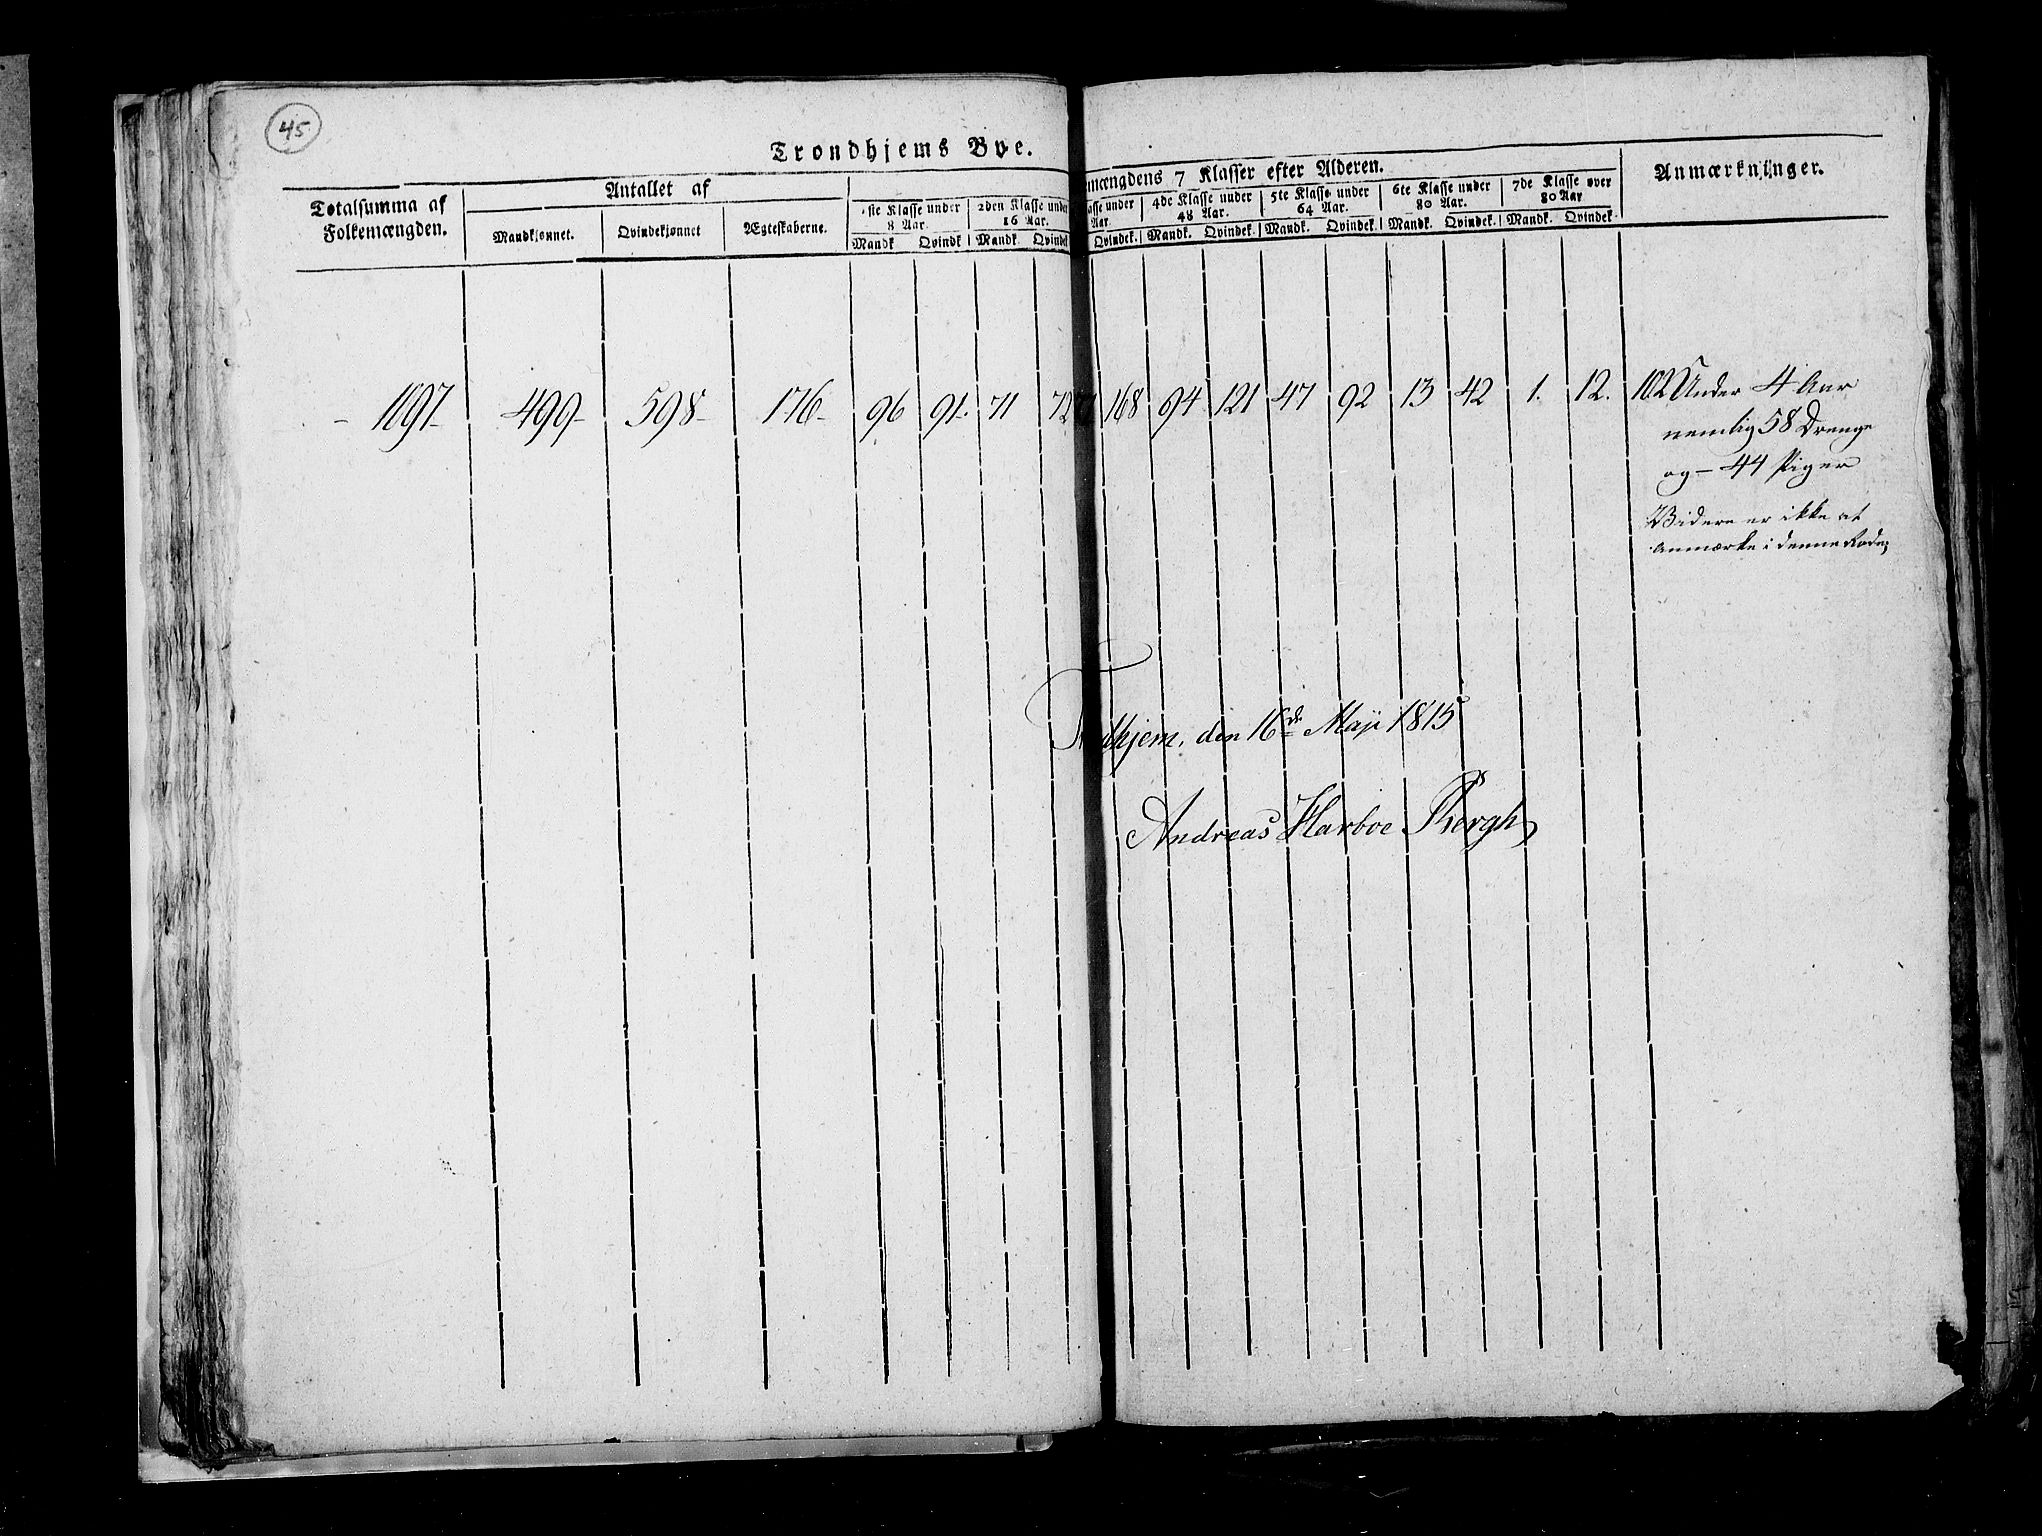 45
Trondhjems Bye.
Totalsumma af
Folkemængden.
Antallet af
Mandkjønnet.
Qvindekjønnet
Ægteskaberne.
mængdens 7 Klasser efter Alderen.
ste Klasse under
8 Aar.
Mandk Qvindk
2den Klasse under
16 Aar.
Mandk Qvindek
asse under
Aar
Qvindek.
4de Klasse under
48 Aar.
Mandk. Qvindek.
5te Klasse under
64 Aar.
Mandk. Qvindek.
6te Klasse under
80 Aar.
Mandk. Qvindek.
7de Klasse over
80 Aar
Mandk. Qvindek.
Anmærkninger.
- 1097- 499- 598- 176- 96 91. 71 72 168 94 121 47 92 13 42 1. 12. 102 Under 4 Aar
nemlig 58 Drenge
og - 44 Piger
Videre er ikke at
anmærke i denne Rode;
dhjem, den 16de Maji 1815
Andreas Harboe Bergh